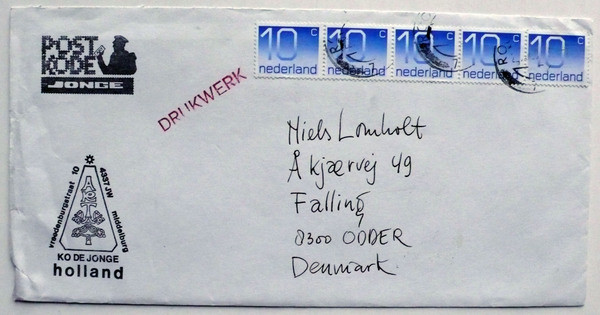 POST
KODE
JONGE
10 c
nederland
10 c
nederland
10 c
nederland
10 c
nederland
10 c
nederland
DRUKWERK
Niels Lomholt
Åkjærvej 49
Falling
8300 ODDER
Denmark
vreedenburgstraat 10
4337 JW middelburg
KO DE JONGE
holland